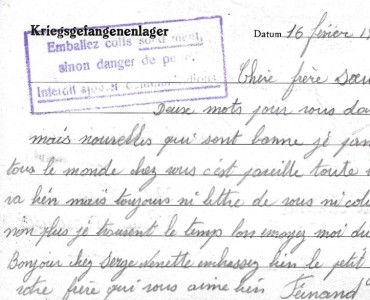 Kriegsgefangenenlager
Datum 16 février 19
Emballez colis solidement,
sinon danger de perte.
Interdit ajouter communications
Chère frère Sœur
Deux mots pour vous do
mais nouvelles qui sont bonne je pense
tous le monde chez vous c'est pareille toute
va bien mais toujours ni lettre de vous ni colis
non plus je trouvent le temps lon envoyez moi du
Bonjour chez Serge Ninette embrassez bien le petit
votre frère qui vous aime bien Fernand